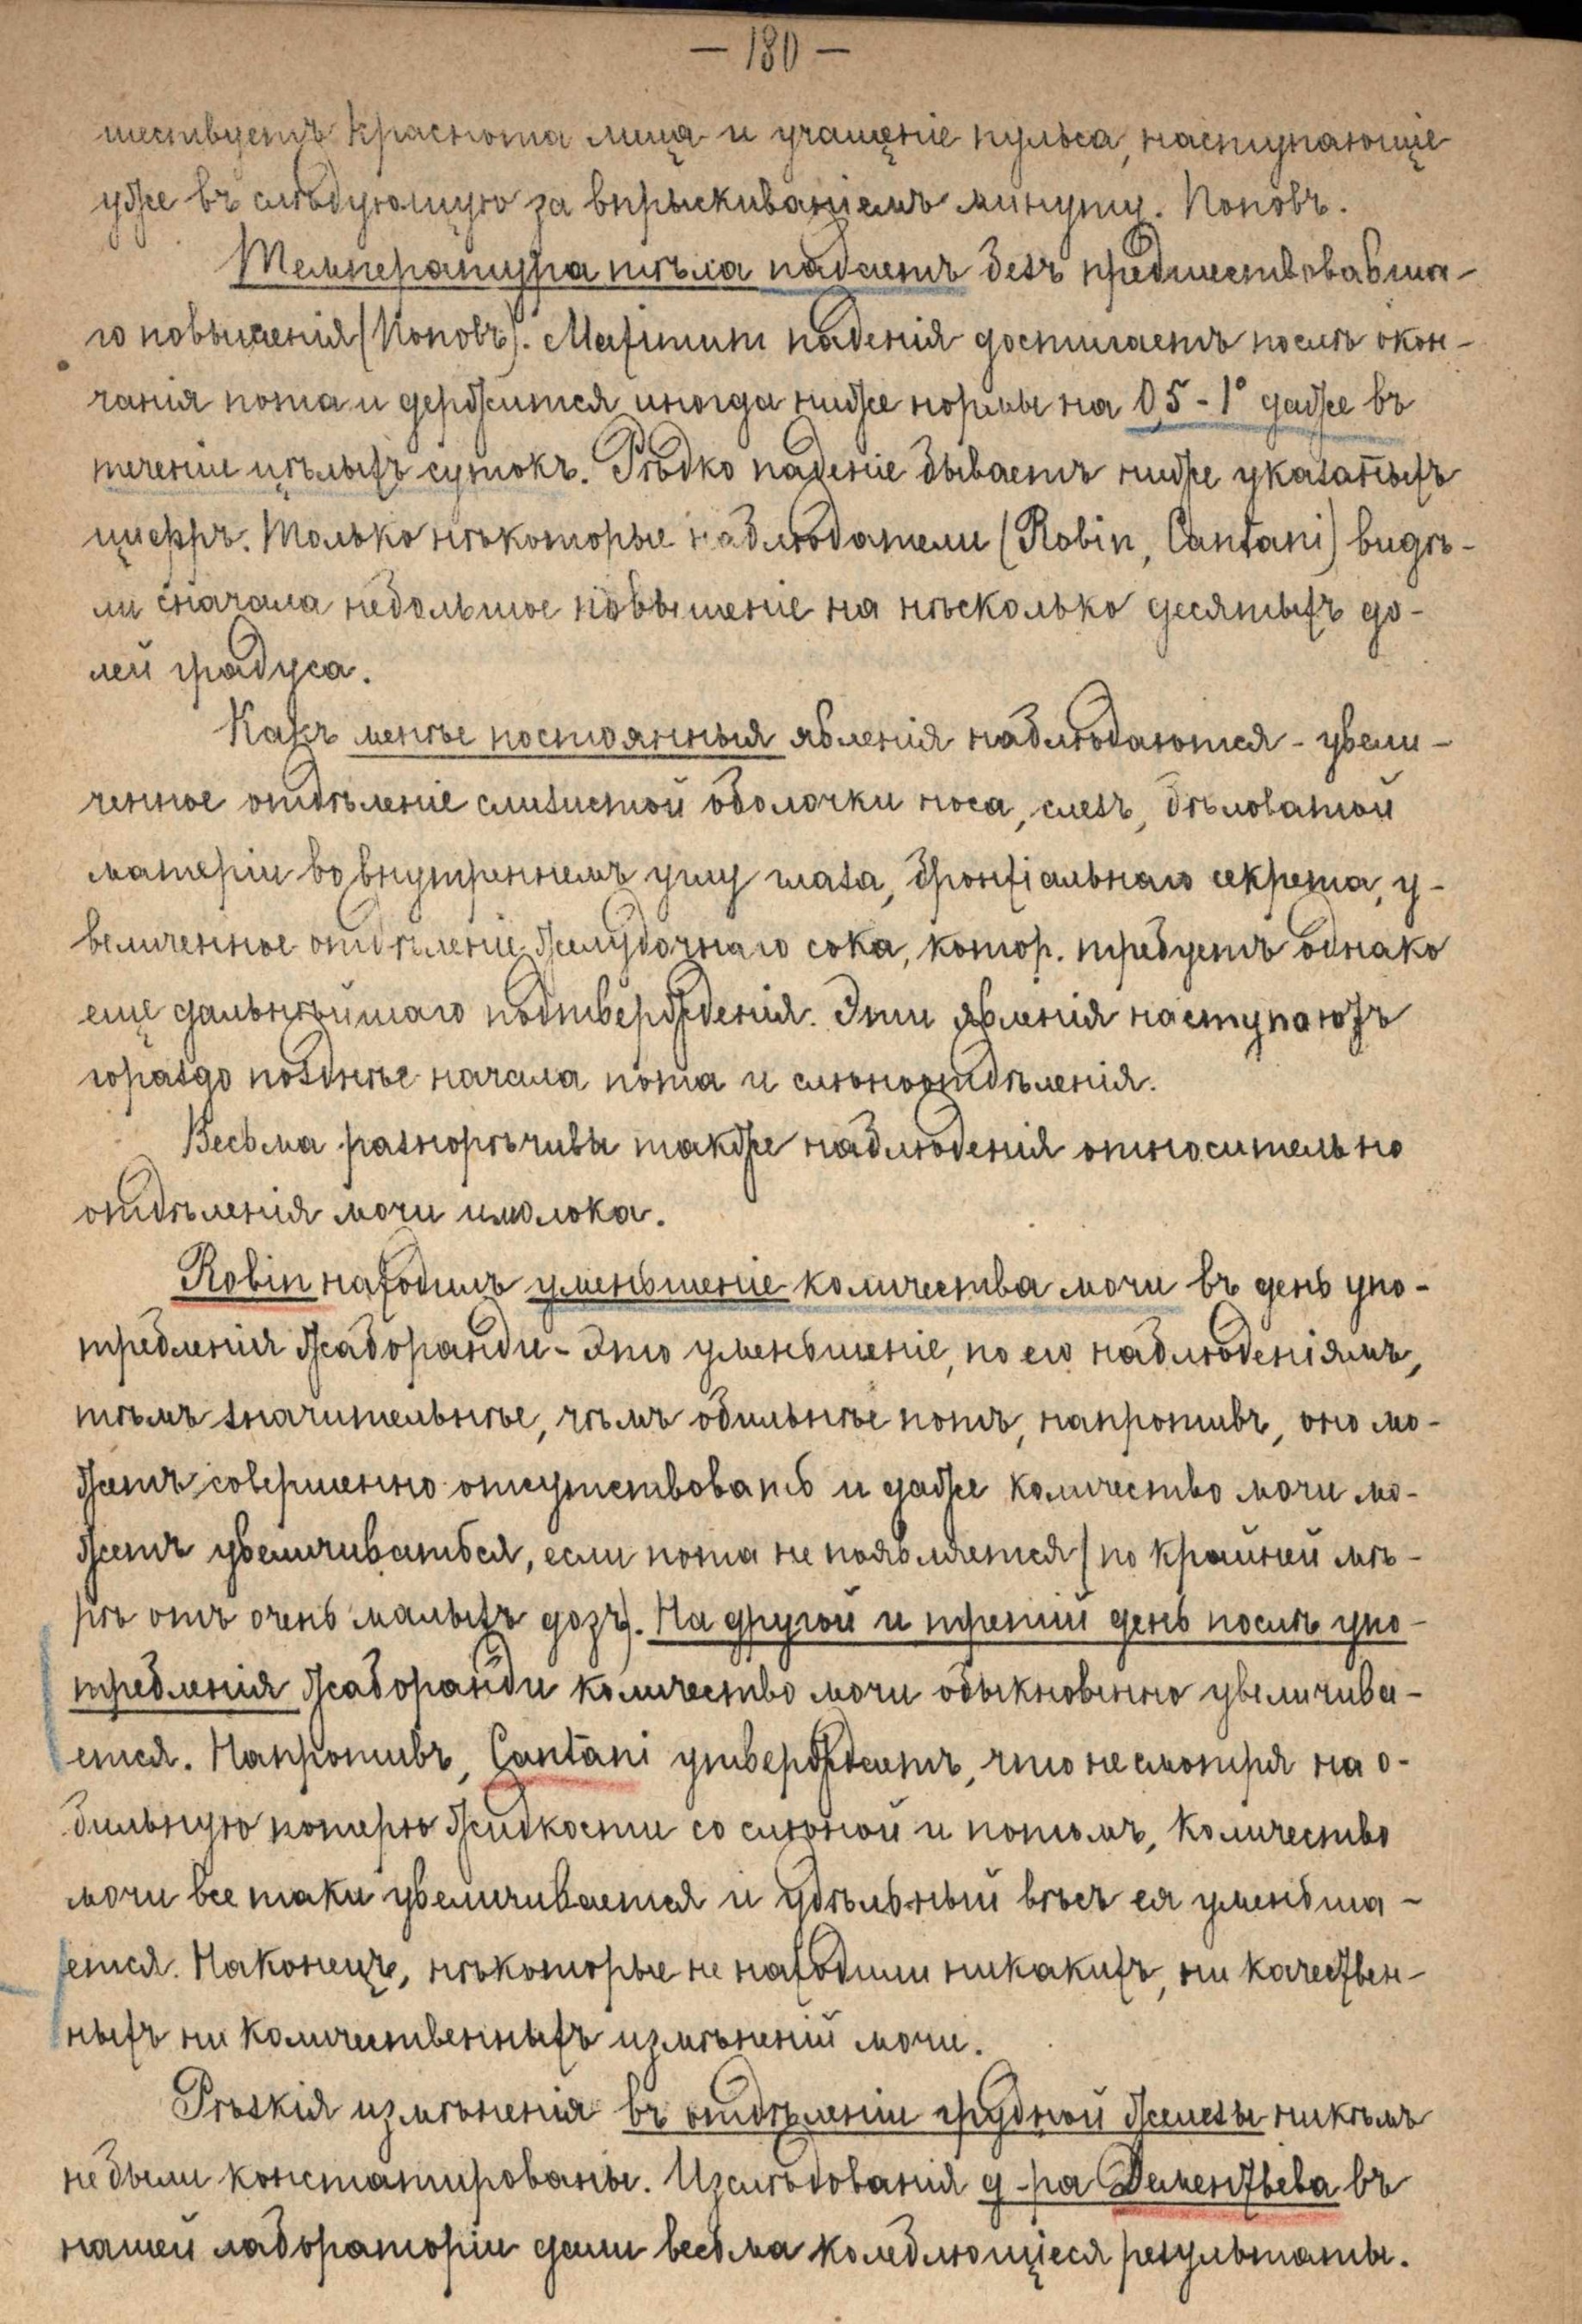 — 180 —
шествуетъ краснота лица и учащеніе пульса, наступающіе
уже въ слѣдующую за впрыскиваніемъ минуту. Поповъ.
Температура тѣла падаетъ безъ предшествовавша-
го повышенія (Поповъ). Maximum паденія достигаетъ послѣ окон-
чанія пота и держится иногда ниже нормы на 0,5 - 1° даже въ
теченіе цѣлыхъ сутокъ. Рѣдко паденіе бываетъ ниже указаныхъ
цифръ. Только нѣкоторые наблюдатели (Robin, Cantani) видѣ-
ли сначала небольшое повышеніе на нѣсколько десятыхъ до-
лей градуса.
Какъ менѣе постоянныя явленія наблюдаются - увели-
ченное отдѣленіе слизистой оболочки носа, слезъ, бѣловатой
матеріи во внутреннемъ углу глаза, бронхіальнаго секрета, у-
величенное отдѣленіе желудочнаго сока, котор. требуетъ однако
еще дальнѣйшаго подтвержденія. Эти явленія наступаютъ
гораздо позднѣе начала пота и слюноотдѣленія.
Весьма разнорѣчивы также наблюденія относительно
отдѣленія мочи и молока.
Robin находилъ уменьшеніе количества мочи въ день упо-
требленія жаборанди - Это уменьшеніе, по его наблюденіямъ,
тѣмъ значительнѣе, чѣмъ обильнѣе потъ, напротивъ, оно мо-
жетъ совершенно отсутствовать и даже количество мочи мо-
жетъ увеличиваться, если пота не появляется (по крайней мѣ-
рѣ отъ очень малыхъ дозъ). На другой и третій день послѣ упо-
требленія жаборанди количество мочи обыкновенно увеличива-
ется. Напротивъ, Cantani утверждаетъ, что несмотря на о-
бильную потерю жидкости со слюной и потомъ, количество
мочи все таки увеличивается и удѣльный вѣсъ ея уменьша-
ется. Наконецъ, нѣкоторые не находили никакихъ, ни качествен-
ныхъ ни количественныхъ измѣненій мочи.
Рѣзкія измѣненія въ отдѣленіи грудной железы никѣмъ
не были констатированы. Изслѣдованія д-ра Дементьева въ
нашей лабораторіи дали весьма колеблющіеся результаты.